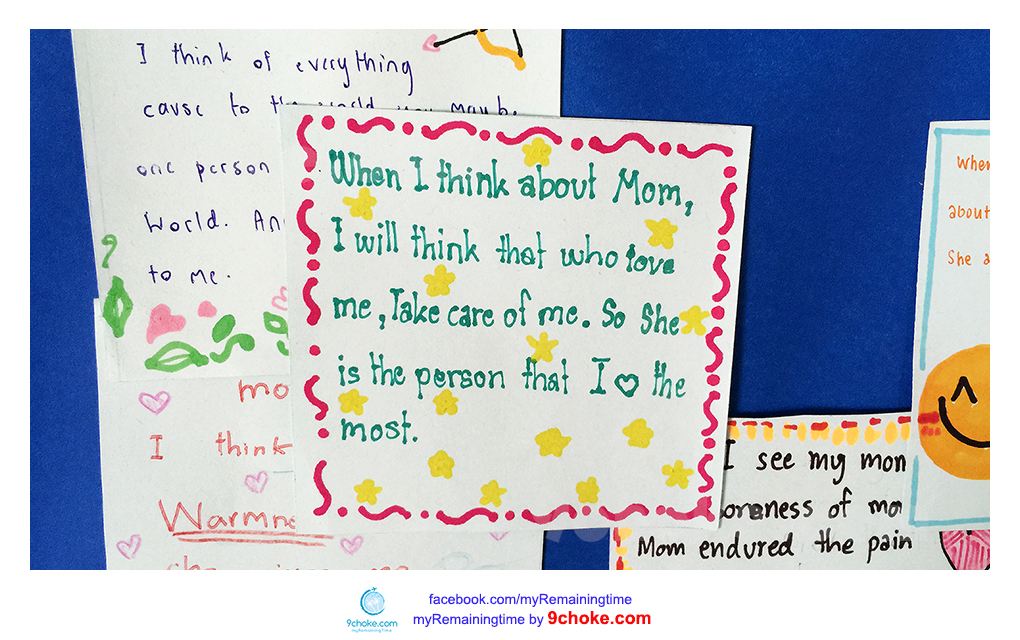 I think of everything
cause to the world you maybe
one person
World. An
to me.
When I think about Mom,
I will think that who love
me, Take care of me. So She
is the person that I ♡ the
most.
mo
I think
Warmne
When
about
She a
I see my mom
Mom endured the pain
9choke.com
myRemainingTime
facebook.com/myRemainingtime
myRemainingtime by 9choke.com